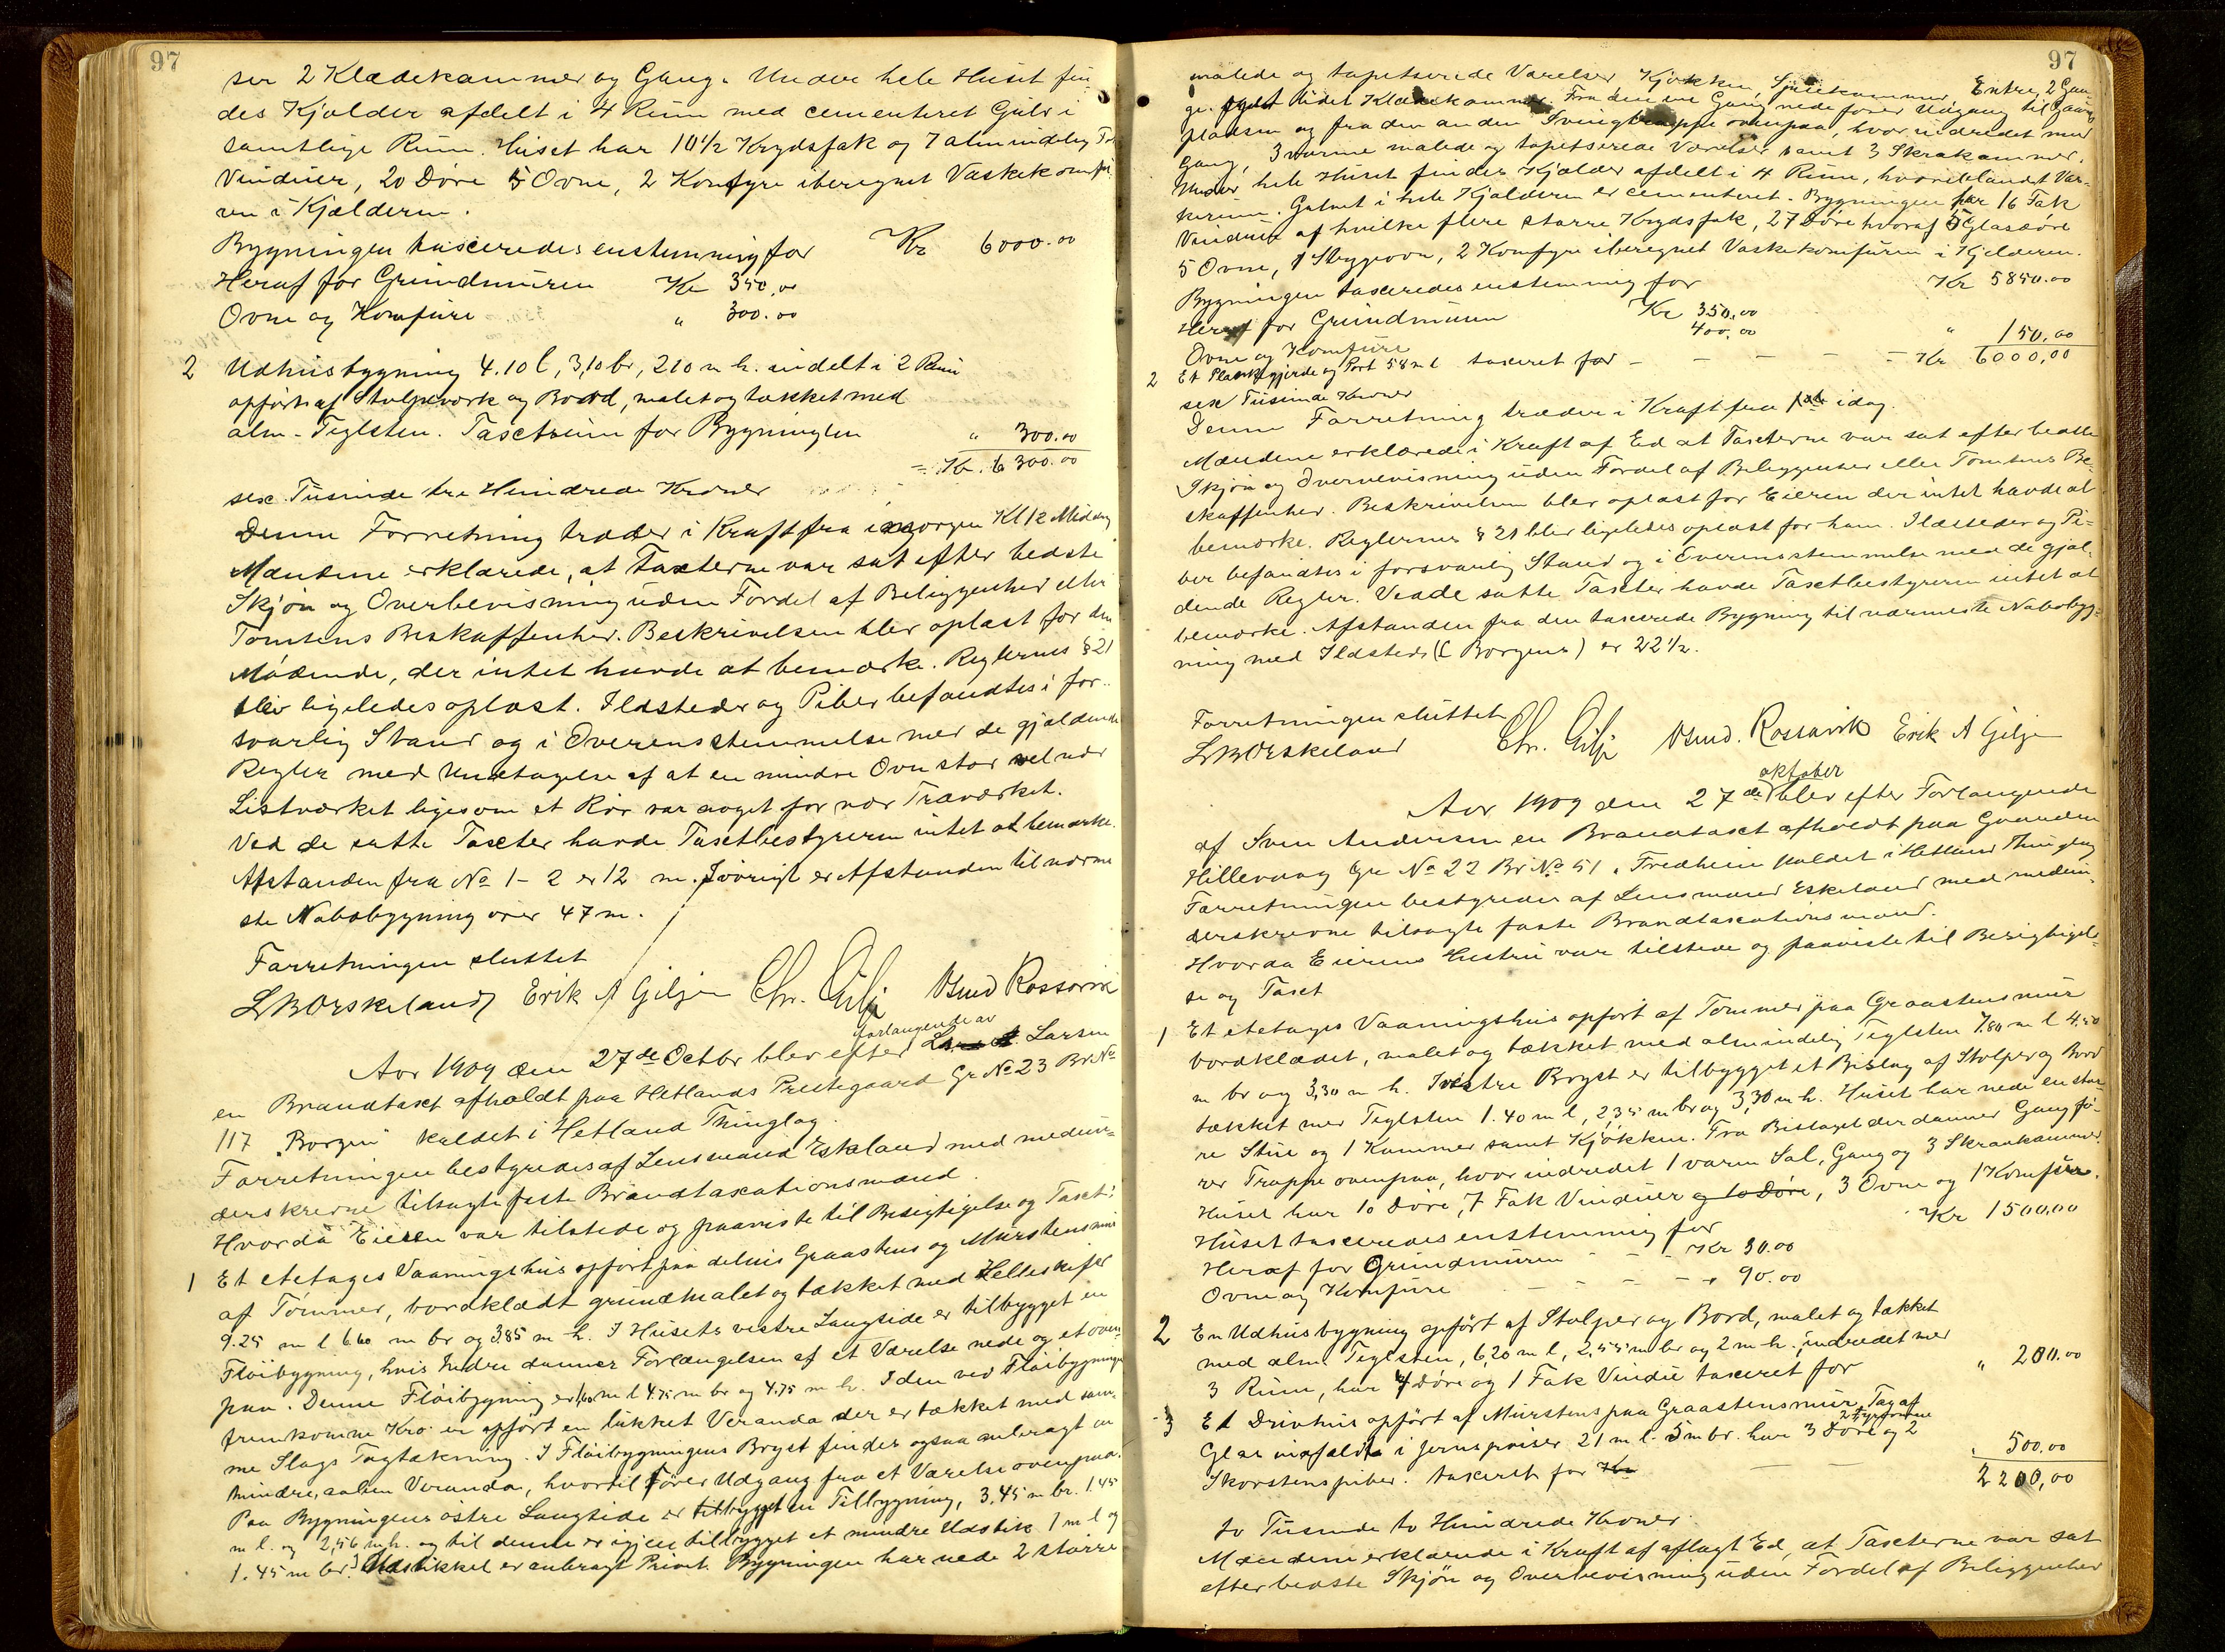 97
ser 2 Klædekammer og Gang. Under hele Huset fin
des Kjælder afdelt i 4 Rum med cementeret Gulv i
samtlige Rum. Huset har 10 1/2 Krydsfak og 7 almindelig
Vinduer, 20 Døre 5 Ovne, 2 Komfyre iberegnet Vaskekomfu
ren i Kjælderen.
Bygningen taxeredes enstemmig for Kr 6000.00
Heraf for Grundmuren Kr 350,00
Ovne og Komfure " 300.00
2 Udhusbygning 4.10 l, 3,10 br, 210 m h. indelt i 2 Rum
opført af Stolpeværk og Bord, malet og tækket med
alm. Teglsten. Taxtsum for Bygningen " 300.00
= Kr. 6300.00
sex Tusinde tre Hundrede Kroner
Denne Forretning træder i Kraft fra imorgen Kl 12 Middag
Mændene erklærede, at Taxterne var sat efter bedste
Skjøn og Overbevisning uden Fordel af Beliggenhed eller
Tomtens Beskaffenhed. Beskrivelsen blev oplæst for den
Mødende, der intet havde at bemærke. Reglernes § 21
blev ligeledes oplæst. Ildsteder og Piber befandtes i for-
svarlig Stand og i Overensstemmelse med de gjældende
Regler med Undtagelse af at en mindre Ovn stod vel nær
Listværket ligesom et Rør var noget for nær Træværket.
Ved de satte Taxter havde Taxtbestyreren intet at bemærke.
Afstanden fra No 1 - 2 er 12 m. Iøvrigt er Afstanden til nærme
ste Nabobygning over 47 m.
Forretningen sluttet
LBOrskeland Erik A Gilje Chr. Gilje Osmd Rossavik
forlangende av
Aar 1909 den 27de Octbr blev efter Larsen
en Brandtaxt afholdt paa Hetlands Prestegaard Gr No 23 Br No
117 "Borgen" kaldet i Hetland Thinglag.
Forretningen bestyredes af Lensmand Eskeland med medun-
derskrevne tilsagte faste Brandtaxationsmænd.
Hvorda Eieren var tilstede og paaviste til Besigtigelse og Taxt:
1 Et etetages Vaaningshus opført paa delvis Graastens og Murstensmur
af Tømmer, bordklædt grundmalet og tækket med Helleskifer
9.25 m l 6.60 m br og 3.85 m h. I Husets vestre Langside er tilbygget en
Fløibygning, hvis Indre danner Forlængelsen af et Værelse nede og et oven
paa. Denne Fløibygning er 1,60 m l 4.75 m br og 4.75 m h. I den ved Fløibygningen
fremkomne Kro er opført en lukket Veranda der er tækket med sam-
me Slags Tagtækning. I Fløibygningens Bryst findes ogsaa anbragt en
mindre, aaben Veranda, hvortil fører Udgang fra et Værelse ovenpaa.
Paa Bygningens østre Langside er tilbygget en Tilbygning, 3,45 m br. 1.45
m l. og 2,56 m h. og til denne er igjen tilbygget et mindre Udstik 1 m l og
1.45 m br. I Udstikket er anbragt Privet. Bygningen har nede 2 større
97
malede og tapetserede Værelser, Kjøkken, Spisekammer, Entre, 2 Gan
ge, samt lidet Klædekammer. Fra den ene Gang nede fører Udgang til Gaards
pladsen og fra den anden Svingtrappe ovenpaa, hvor indredet med
Gang, 3 varme malede og tapetserede Værelser samt 3 Skrakammer.
Under hele Huset findes Kjælder afdelt i 4 Rum, hvoriblandt Vas-
kerum. Gulvet i hele Kjælderen er cementeret. Bygningen har 16 Fak
Vinduer af hvilke flere større Krydsfak, 27 Døre hvoraf 5 Glasdøre
5 Ovne, 1 Strygeovn, 2 Komfyre iberegnet Vaskekomfuren i Kjelderen.
Bygningen taxeredes enstemmig for Kr 5850.00
Heraf for Grundmuren Kr 350.00
Ovne og Komfure 400.00
2 Et Plankegjerde og Port 58 m l taxeret for - - - " 150.00
= Kr 6000,00
sex Tusinde Kroner
Denne Forretning træder i Kraft fra idag.
Mændene erklærede i Kraft af Ed at Taxterne var sat efter bedste
Skjøn og Overbevisning uden Fordel af Beliggenhed eller Tomtens Be-
skaffenhed. Beskrivelsen blev oplæst for Eieren der intet havde at
bemærke. Reglernes § 21 blev ligeledes oplæst for ham. Ildsteder og Pi-
ber befandtes i forsvarlig Stand og i Overensstemmelse med de gjæl-
dende Regler. Ved de satte Taxter havde Taxtbestyreren intet at
bemærke. Afstanden fra den taxerede Bygning til nærmeste Nabobyg-
ning med Ildsted (C Borgens) er 22 1/2.
Forretningen sluttet
LBOrskeland Chr. Gilje Osmd. Rossavik Erik A Gilje
oktober
Aar 1909 den 27de blev efter Forlangende
af Sven Andersen en Brandtaxt afholdt paa Gaarden
Hillevaag Gr No 22 Br No 51, Fredheim kaldet i Hetland Thinglag
Forretningen bestyredes af Lensmand Eskeland med medun-
derskrevne tilsagte faste Brandtaxationsmænd.
Hvorda Eierens Hustru var tilstede og paaviste til Besigtigel-
se og Taxt
1 Et etetages Vaaningshus opført af Tømmer paa Graastensmur
bordklædet, malet og tækket med almindelig Teglsten 7.80 m l 4.50
m br og 3,30 m h. I vestre Bryst er tilbygget et Bislag af Stolper og Bord
tækket med Teglsten 1.40 m l, 2,35 m br og 3,30 m h. Huset har nede en stør
re Stue og 1 Kammer samt Kjøkken. Fra Bislaget der danner Gang fø-
rer Trappe ovenpaa, hvor indredet 1 varm Sal, Gang og 3 Skraakammer.
Huset har 10 Døre, 7 Fak Vinduer og 10 Døre, 3 Ovne og 1 Komfur.
Huset taxeredes enstemmig for Kr 1500,00
Heraf for Grundmuren - - - Kr 30.00
Ovne og Komfure - - - - " 90.00
2 En Udhusbygning opført af Stolper og Bord, malet og tækket
med alm. Teglsten, 6,20 m l, 2,55 m br og 2 m h., indredet med
3 Rum, har 4 Døre og 1 Fak Vindu taxeret for " 200.00
3 Et Drivhus opført af Murstens paa Graastensmur, Tag af
Glas inafældte i jernsprosser 21 m l. 5 m br. har 3 Døre og 2
Skorstenspiber. taxeret for Kr - - " 500.00
2200,00
to Tusinde to Hundrede Kroner.
Mændene erklærede i Kraft af aflagt Ed, at Taxterne var sat
efter bedste Skjøn og Overbevisning uden Fordel af Beliggenhed